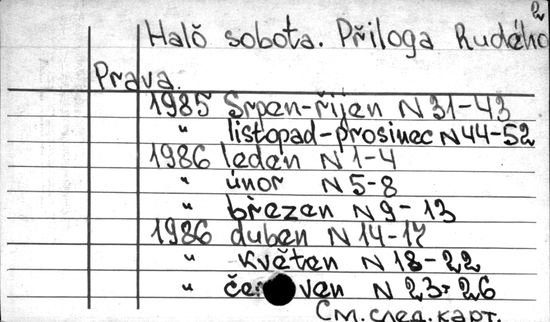 2
Haló sobota. Příloga Rudého
Prava.
1985 Srpen-řijen N 31-43
" listopad-prosinec N 44-52
1986 leden N 1-4
" únor N 5-8
" březen N 9-13
1986 duben N 14-17
" květen N 18-22
" N 23-26
См. след. карт.